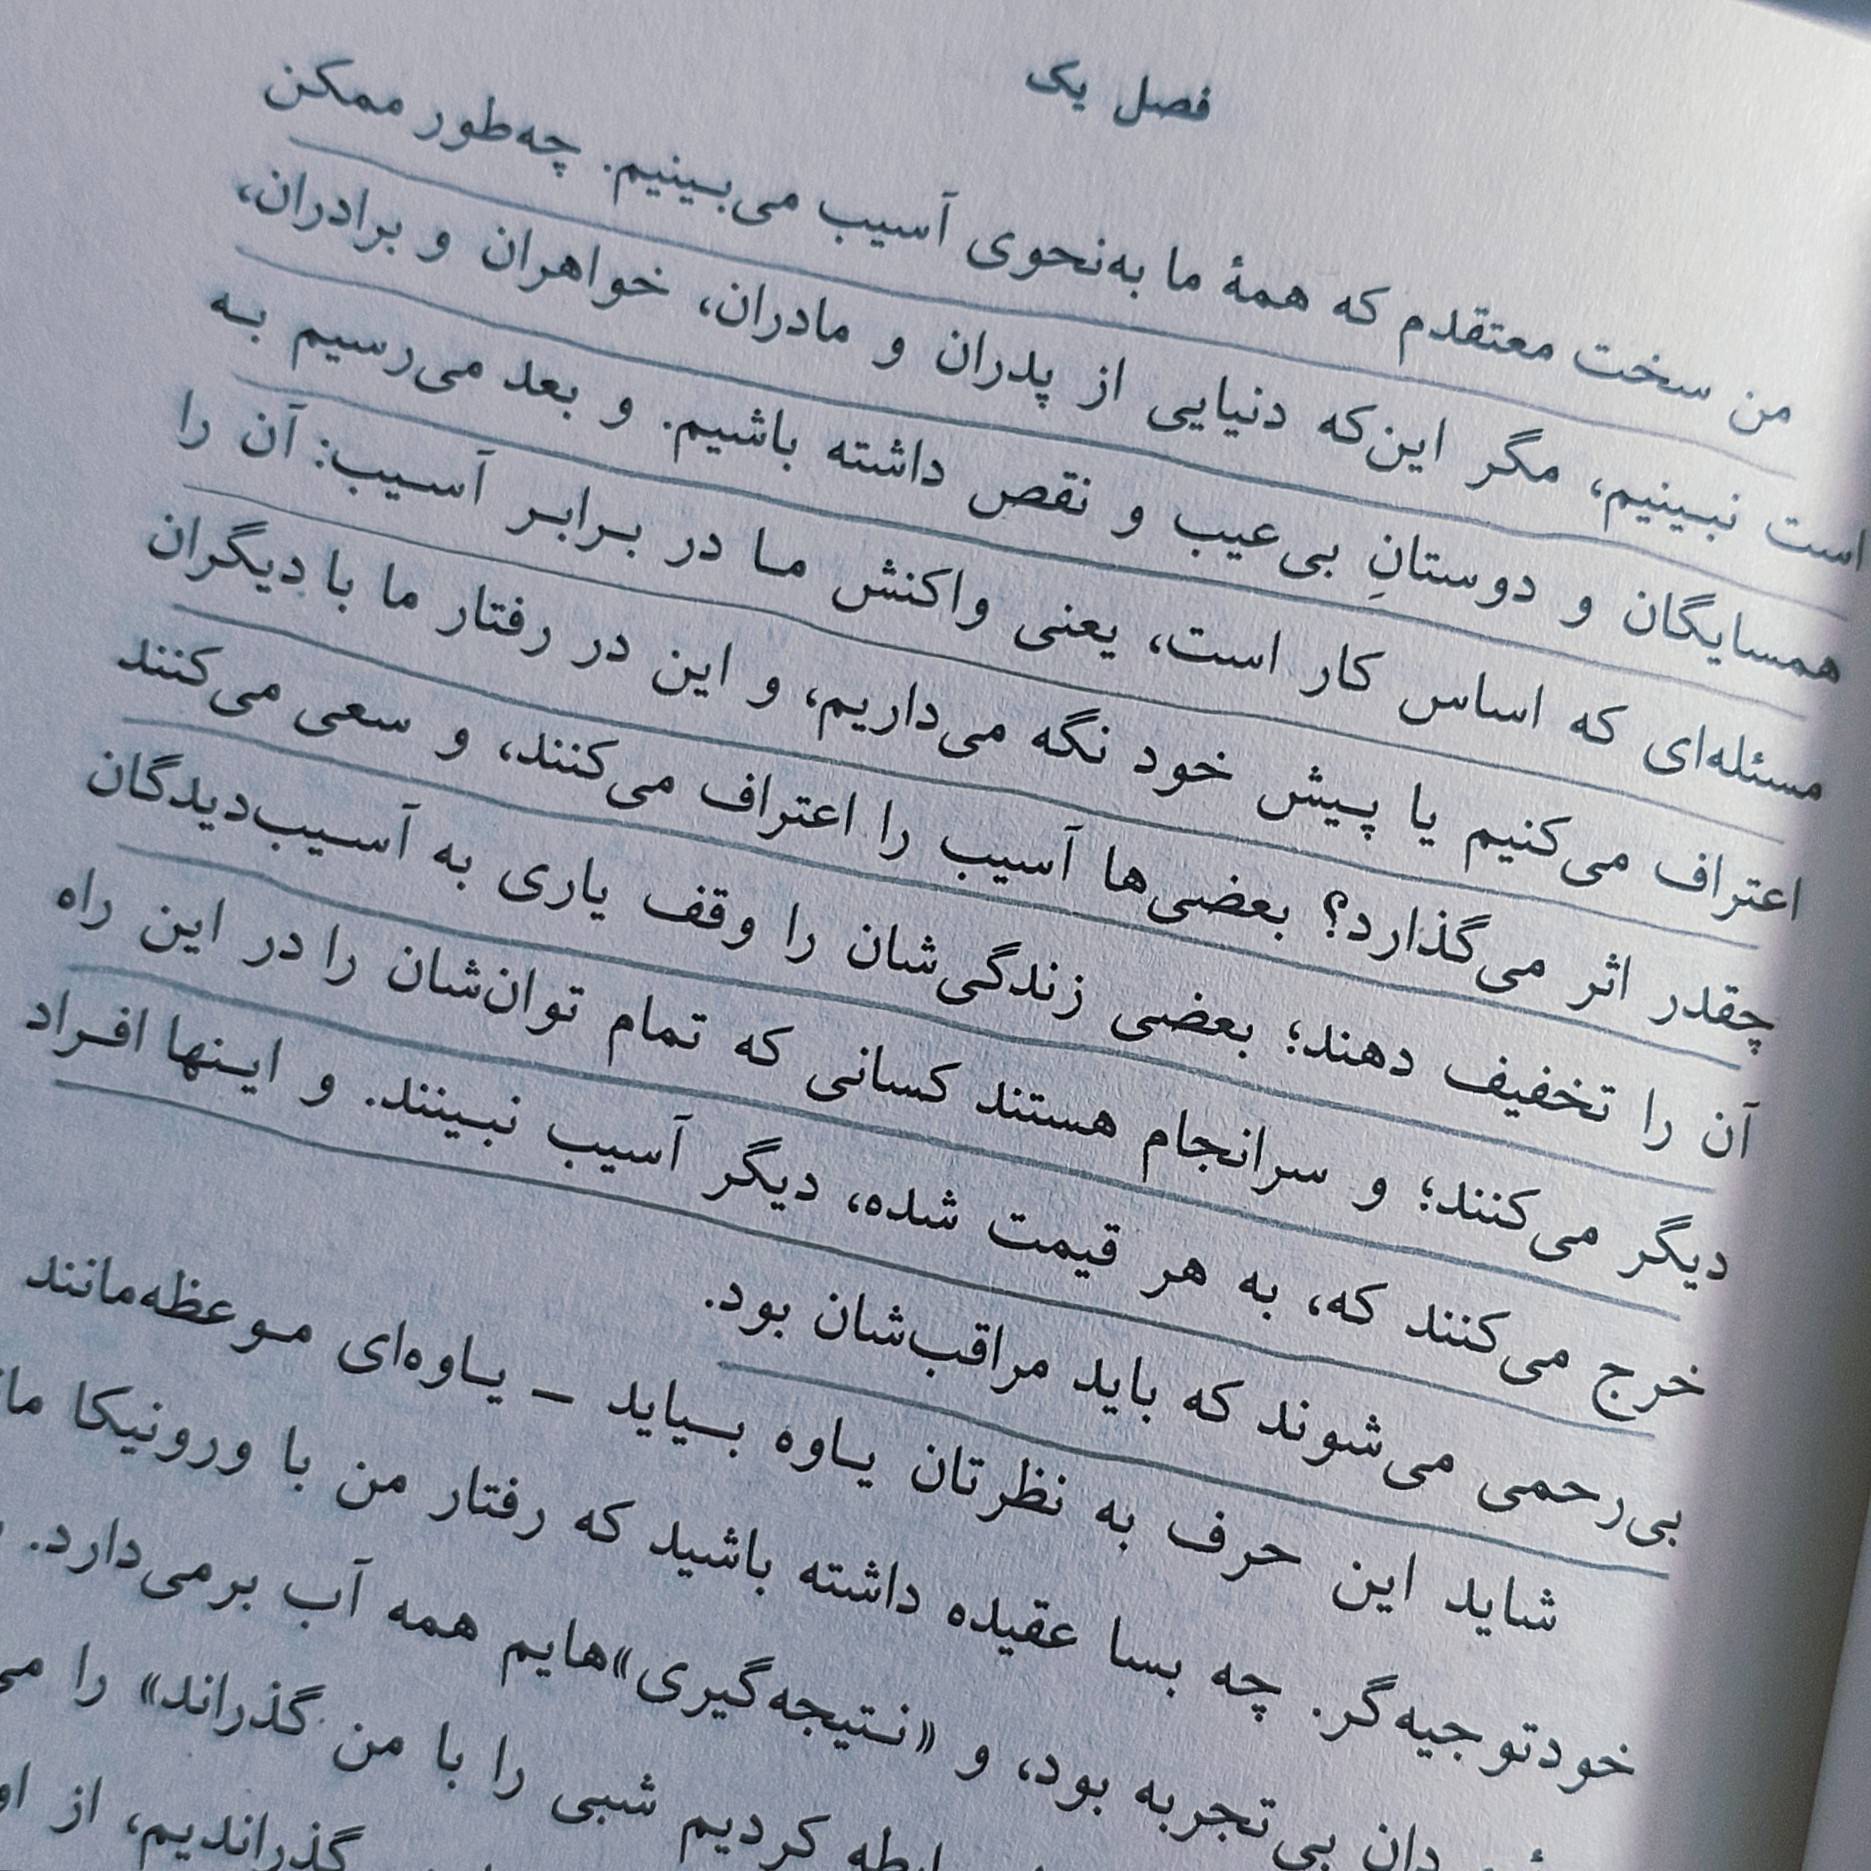 فصل یک
من سخت معتقدم که همهٔ ما به‌نحوی آسیب می‌بینیم. چه‌طور ممکن
است نبینیم، مگر این‌که دنیایی از پدران و مادران، خواهران و برادران،
همسایگان و دوستانِ بی‌عیب و نقص داشته باشیم. و بعد می‌رسیم به
مسئله‌ای که اساس کار است، یعنی واکنش ما در برابر آسیب: آن را
اعتراف می‌کنیم یا پیش خود نگه می‌داریم، و این در رفتار ما با دیگران
چقدر اثر می‌گذارد؟ بعضی‌ها آسیب را اعتراف می‌کنند، و سعی می‌کنند
آن را تخفیف دهند؛ بعضی زندگی‌شان را وقف یاری به آسیب‌دیدگان
دیگر می‌کنند؛ و سرانجام هستند کسانی که تمام توان‌شان را در این راه
خرج می‌کنند که، به هر قیمت شده، دیگر آسیب نبینند. و اینها افراد
بی‌رحمی می‌شوند که باید مراقب‌شان بود.
شاید این حرف به نظرتان یاوه بیاید – یاوه‌ای موعظه‌مانند
خودتوجیه‌گر. چه بسا عقیده داشته باشید که رفتار من با ورونیکا
دان بی‌تجربه بود، و «نتیجه‌گیری»هایم همه آب برمی‌دارد.
کردیم شبی را با من گذراند» را
گذراندیم، از